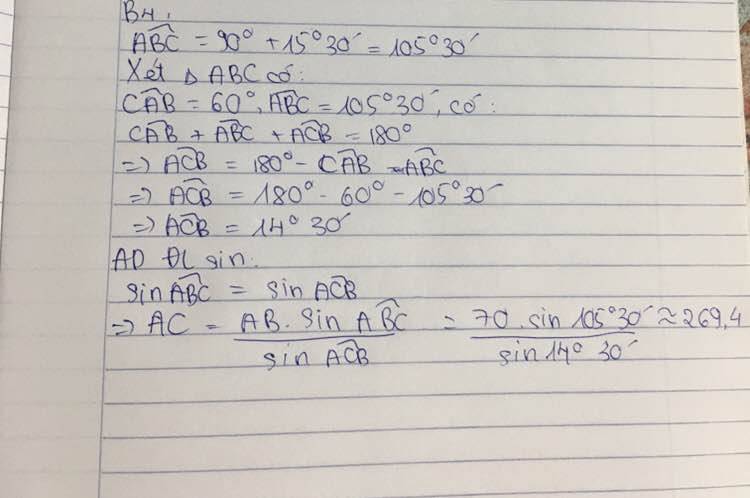 B4.
ABC = 90° + 15°30' = 105°30'
Xét Δ ABC có:
CAB = 60°, ABC = 105°30', có:
CAB + ABC + ACB = 180°
=> ACB = 180° - CAB - ABC
=> ACB = 180° - 60° - 105°30'
=> ACB = 14° 30'
AD ĐL sin:
sin ABC = sin ACB
=> AC = AB. sin ABC / sin ACB = 70. sin 105°30' / sin 14° 30' ≈ 269,4